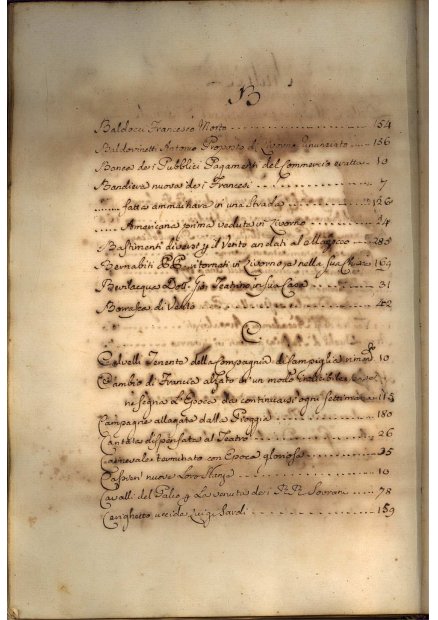 B
Baldocci Francesco Morto ........ 154
Baldovinetti Antonio Proposto di Livorno rinunciato .... 136
Banca dei Pubblici Pagamenti del Commercio 10
Bandiera nuova dei Francesi ........ 7
........ fatta ammainara in una Strada ........ 126
........ Americana prima veduta in Livorno ........ 34
Bastimenti diversi p il Vento andati al
Bernabiti PP. ritornati in Livorno nella sua 164
Bevilacqua Dott. fa Teatino in sua Casa ........ 31
Borrasca di Vento ........ 42
C
Calvelli Tenente della Compagnia di Campiglia 10
Cambio di Francia alzato in un modo incredibile
ne segna l'Epoca da continuarsi ogni settimana 113
Campagne allagate dalla Pioggia ........ 180
Cantata dispensata al Teatro ........ 26
Carnevale terminato con Epoca gloriosa ........ 35
nuove Loro Stanze ........ 10
Cavalli del Palio p La venuta dei RR. Sovrani ... 78
Cerighetto uccide Luigi Sardi ........ 159